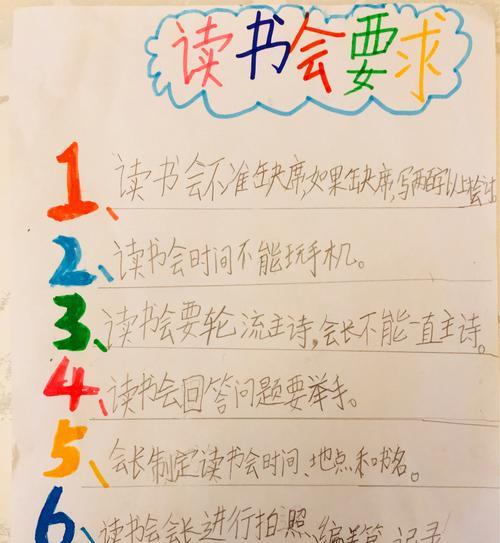 读书会要求
1、读书会不准缺席,如果缺席,写两百字以上检讨
2、读书会时间不能玩手机。
3、读书会要轮流主诗,会长不能一直主诗。
4、读书会回答问题要举手。
5、会长制定读书会时间、地点和书名。
6、读书会会长进行拍照、编美篇、记录